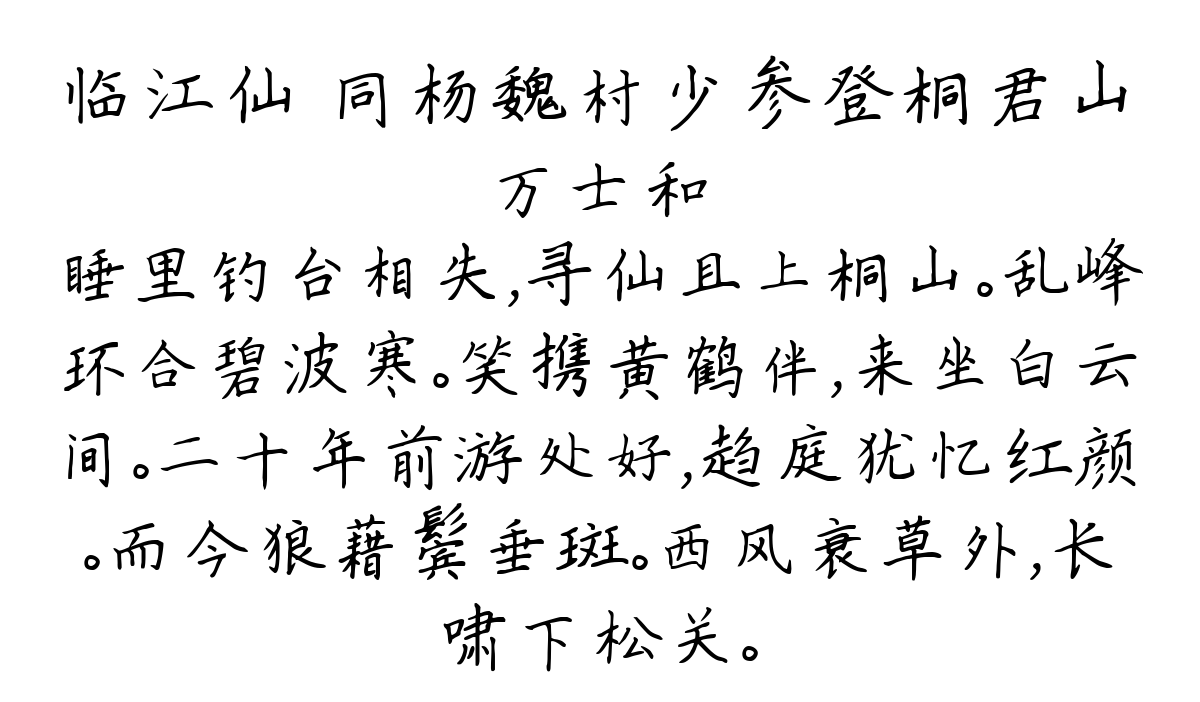 临江仙 同杨魏村少参登桐君山
万士和
睡里钓台相失,寻仙且上桐山。乱峰
环合碧波寒。笑携黄鹤伴,来坐白云
间。二十年前游处好,趋庭犹忆红颜
。而今狼藉鬓垂斑。西风衰草外,长
啸下松关。